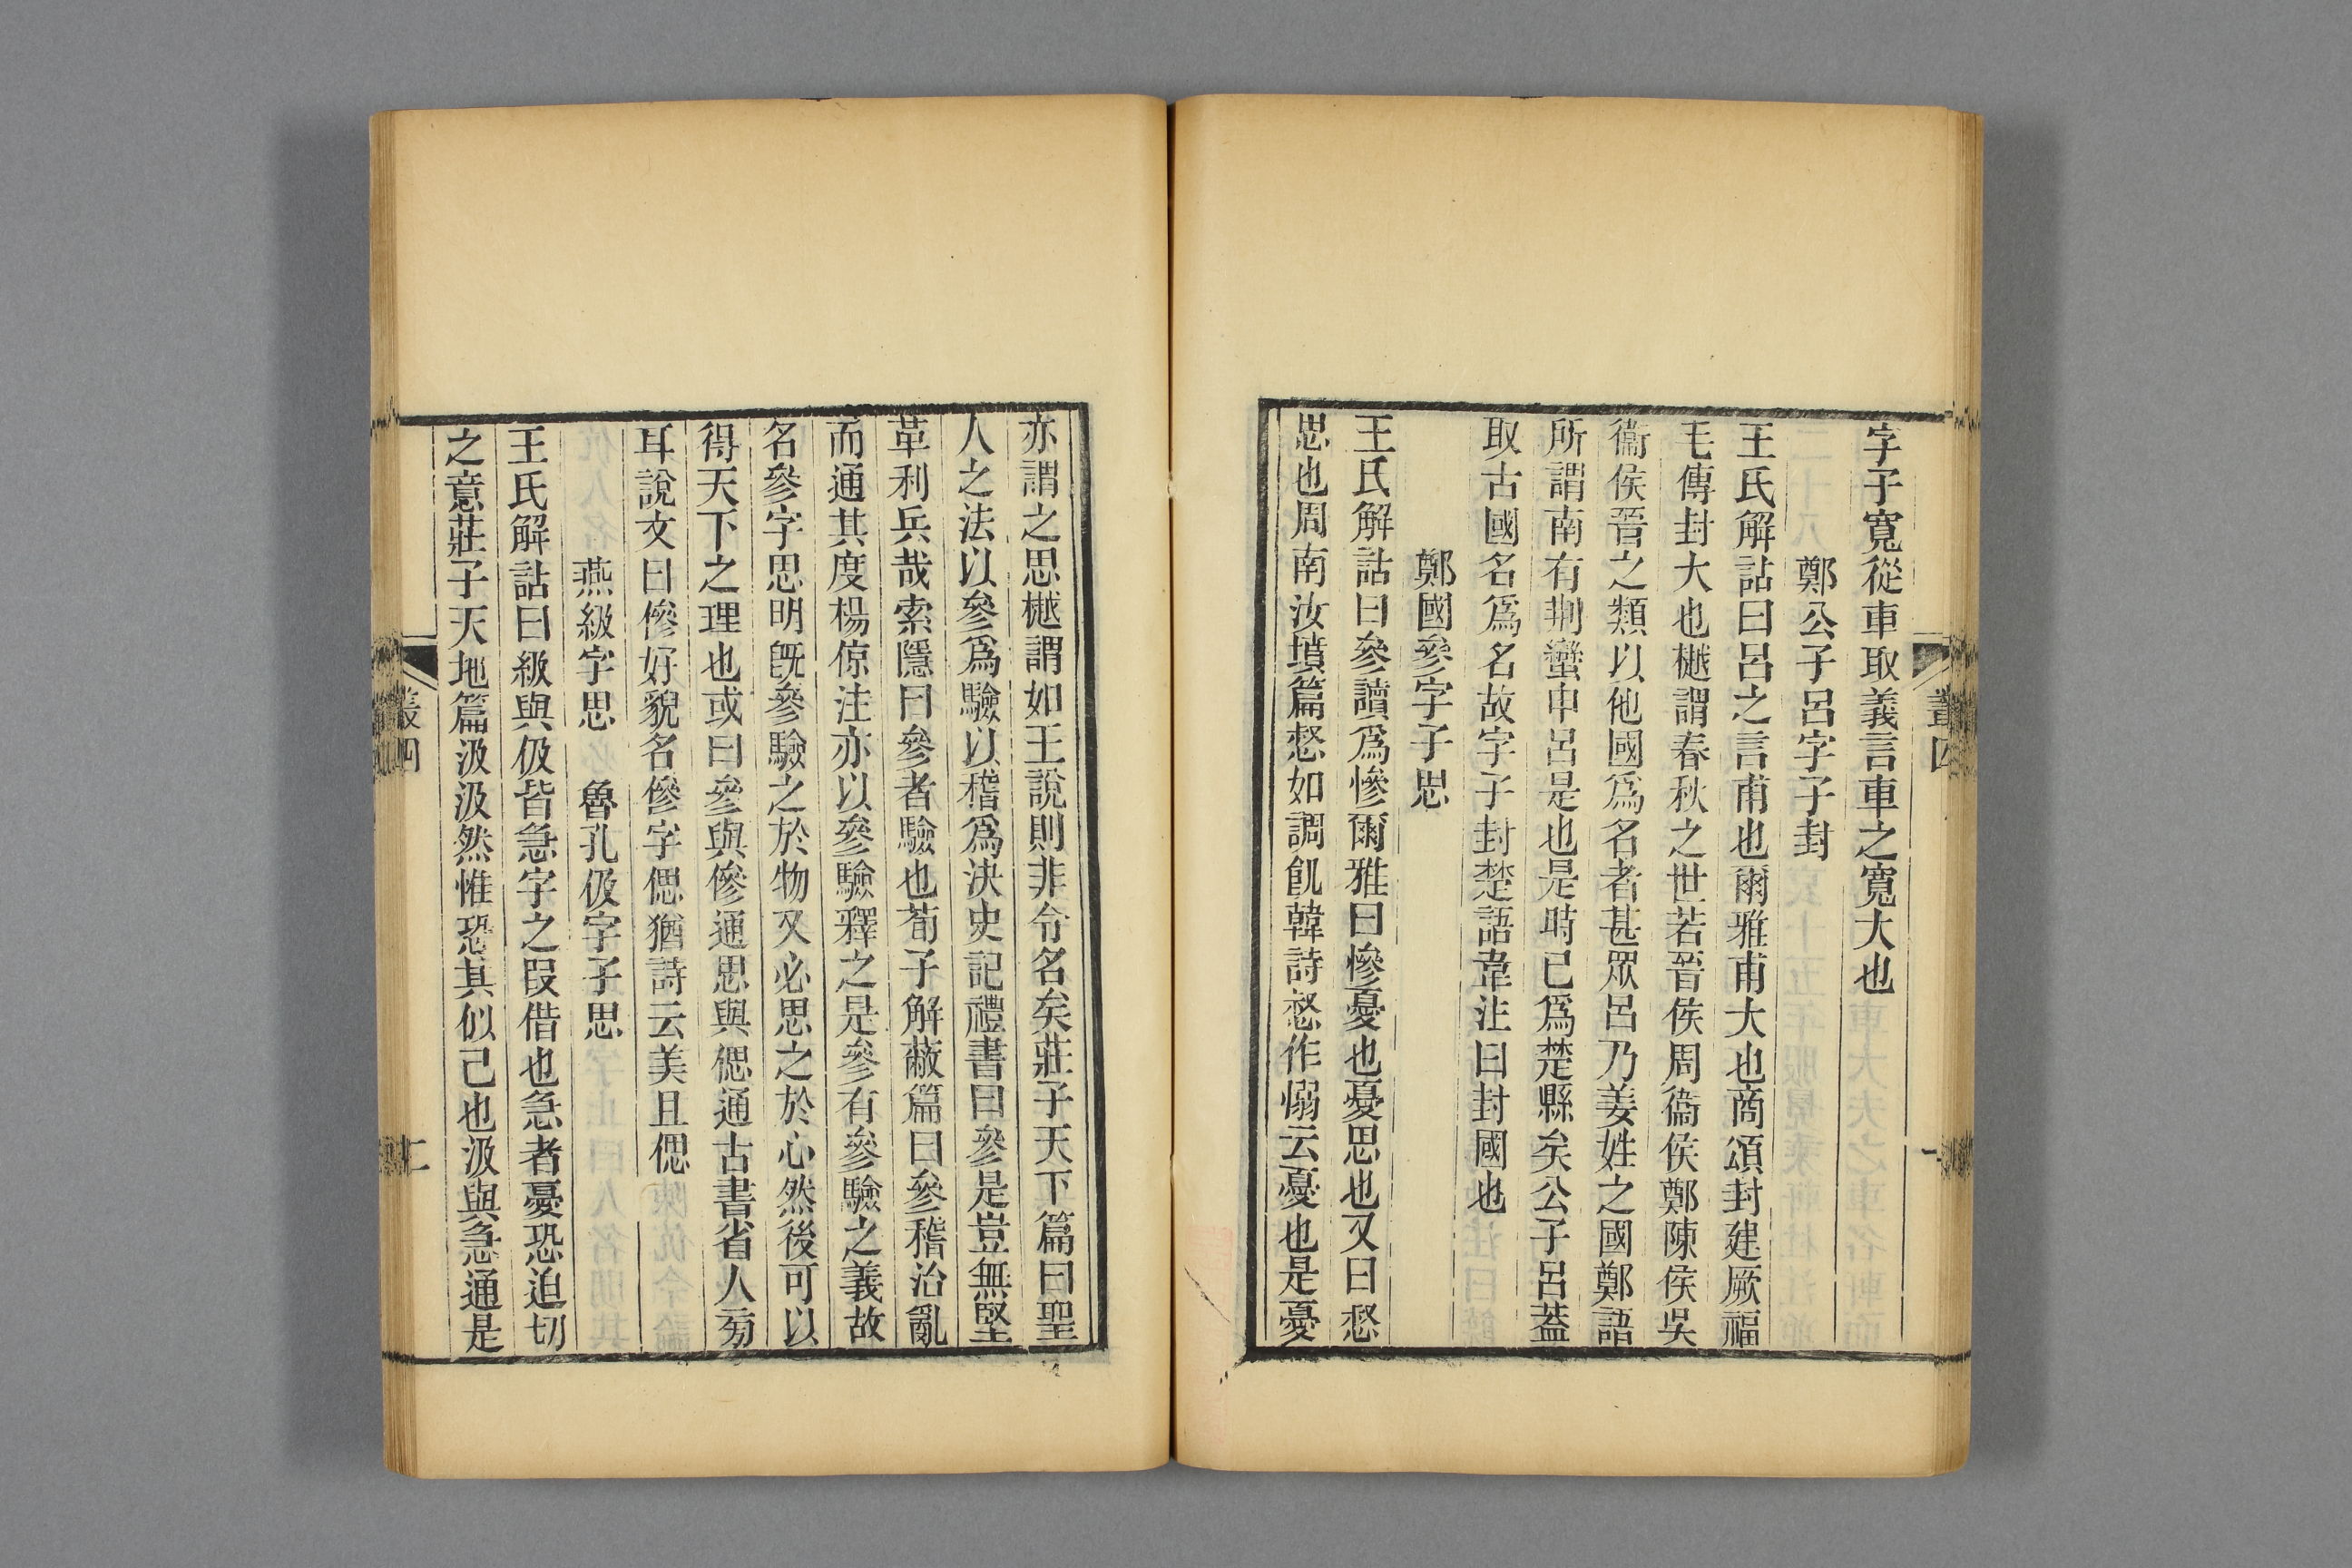 字子寬從車取義言車之寬大也
鄭公子呂字子封
王氏解詁曰呂之言甫也爾雅甫大也商頌封建厥福
毛傳封大也樾謂春秋之世若晉侯周衞侯鄭陳侯吳
衞侯晉之類以他國爲名者甚眾呂乃姜姓之國鄭語
所謂南有荆蠻申呂是也是時已爲楚縣矣公子呂蓋
取古國名爲名故字子封楚語韋注曰封國也
鄭國參字子思
王氏解詁曰參讀爲慘爾雅曰慘憂也憂思也又曰惄
思也周南汝墳篇惄如調飢韓詩惄作愵云憂也是憂
亦謂之思樾謂如王說則非令名矣莊子天下篇曰聖
人之法以參爲驗以稽爲決史記禮書曰參是豈無堅
革利兵哉索隱曰參者驗也荀子解蔽篇曰參稽治亂
而通其度楊倞注亦以參驗釋之是參有參驗之義故
名參字思明旣參驗之於物又必思之於心然後可以
得天下之理也或曰參與傪通思與偲通古書省人㫄
耳說文曰傪好貌名傪字偲猶詩云美且偲
燕級字思　魯孔伋字子思
王氏解詁曰級與伋皆急字之叚借也急者憂恐迫切
之意莊子天地篇汲汲然惟恐其似己也汲與急通是